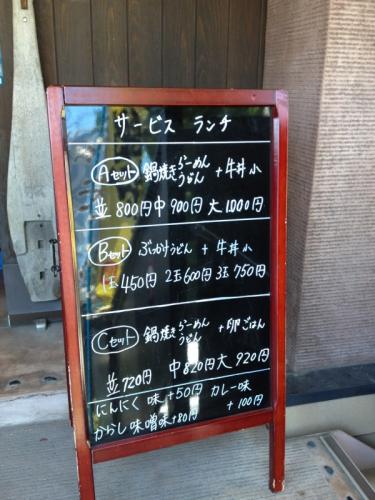 サービス ランチ
Aセット 鍋焼き らーめん うどん + 牛丼 小
並 800円 中 900円 大 1000円
Bセット ぶっかけうどん + 牛丼 小
1玉 450円 2玉 600円 3玉 750円
Cセット 鍋焼き らーめん うどん + 卵ごはん
並 720円 中 820円 大 920円
にんにく 味 +50円 カレー味 +100円
からし味噌味 +80円